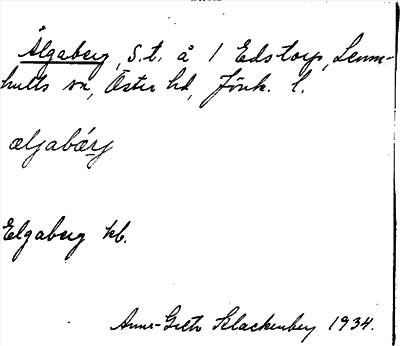 Älgaberg, S.t. å 1 Edstorp, Lemn-
hults sn, Östra hd, Jönk. l.
æljabárj
Elgaberg kb.
Anna-Greta Klackenberg 1934.